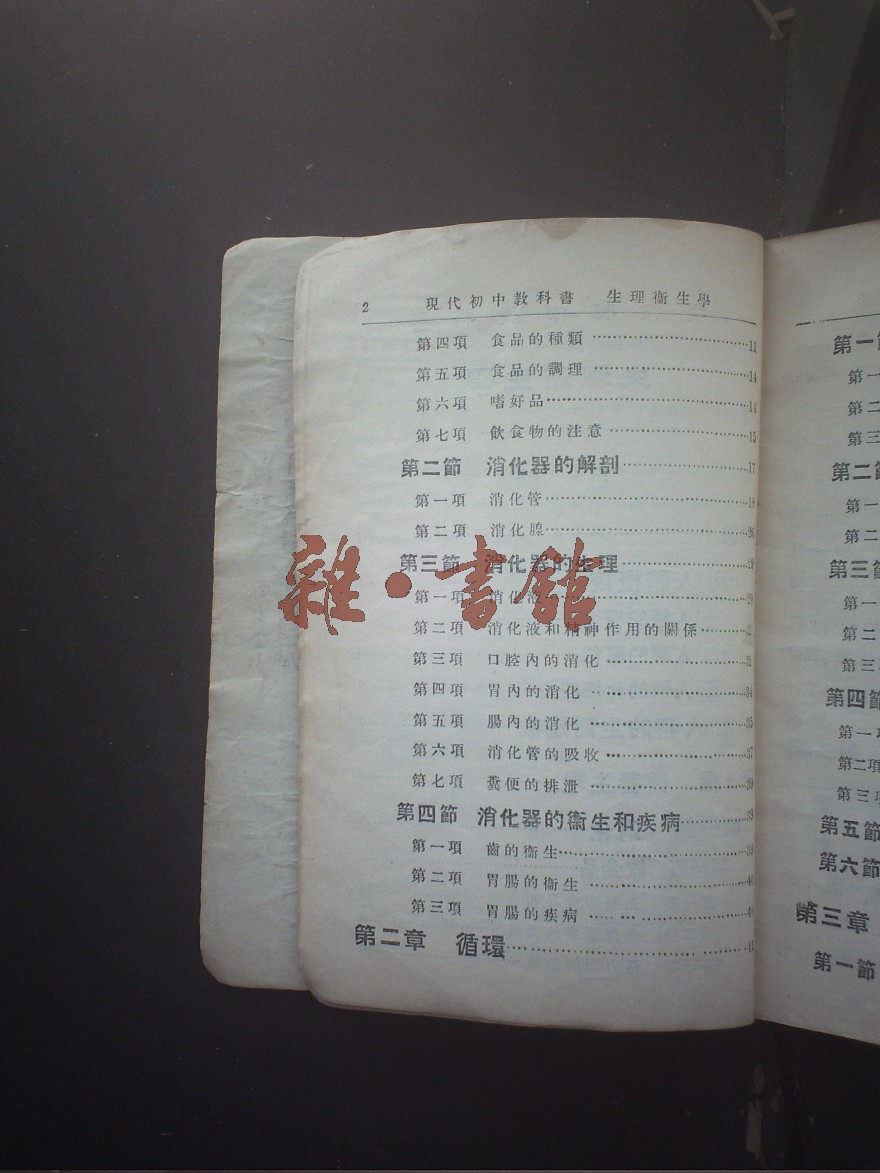 2 現代初中教科書 生理衞生學
第四項 食品的種類 ………………………… 11
第五項 食品的調理 ………………………… 14
第六項 嗜好品 ………………………… 14
第七項 飲食物的注意 ………………………… 15
第二節 消化器的解剖 ………………………… 17
第一項 消化管 ………………………… 18
第二項 消化腺 ………………………… 26
第三節 消化器的生理 …………………………
第一項 消化液 …………………………
第二項 消化液和精神作用的關係 …………
第三項 口腔內的消化 …………………………
第四項 胃內的消化 ………………………… 34
第五項 腸內的消化 ………………………… 35
第六項 消化管的吸收 ………………………… 37
第七項 糞便的排泄 ………………………… 39
第四節 消化器的衞生和疾病 ………… 39
第一項 齒的衞生 ………………………… 39
第二項 胃腸的衞生 …………………………
第三項 胃腸的疾病 …………………………
第二章 循環 …………………………
雜・書館
第一
第二
第三
第二節
第一
第二
第三節
第一
第二
第三
第四節
第一
第二項
第三項
第五節
第六節
第三章
第一節